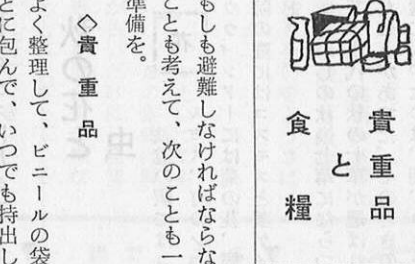 貴重品
と
食糧
もしも避難しなければならな
ことも考えて、次のことも一
準備を。
◇貴重品
よく整理して、ビニールの袋
とに包んで、いつでも持出し